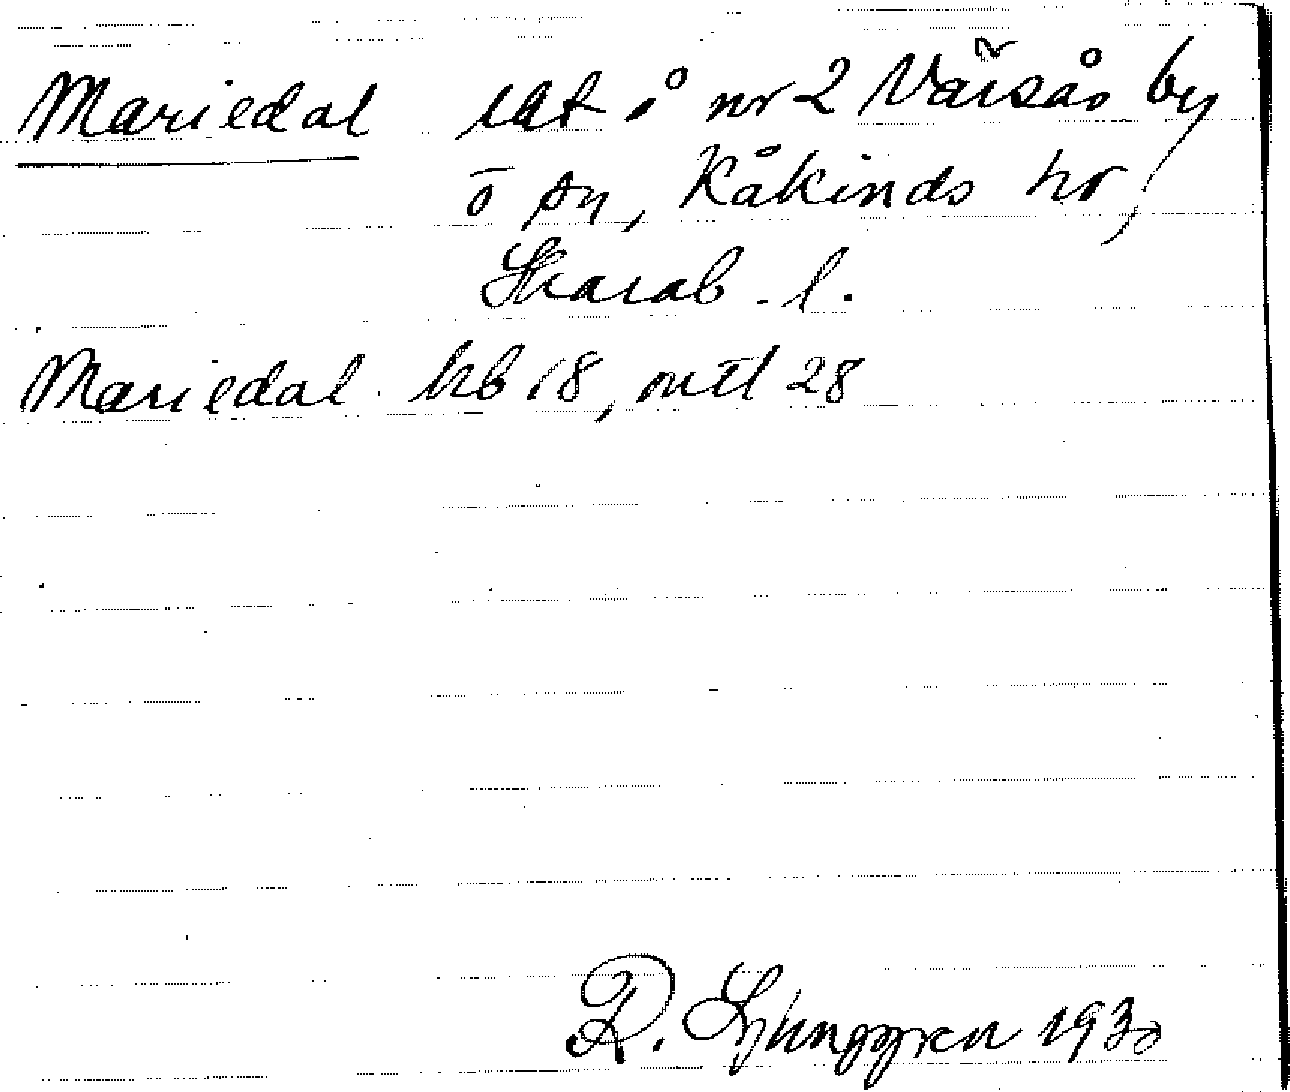 Mariedal lht å nr 2 Värsås by
o sn, Kåkinds hd,
Skarab. l.
Mariedal hb 18, mtl 28
R. Ljunggren 1930